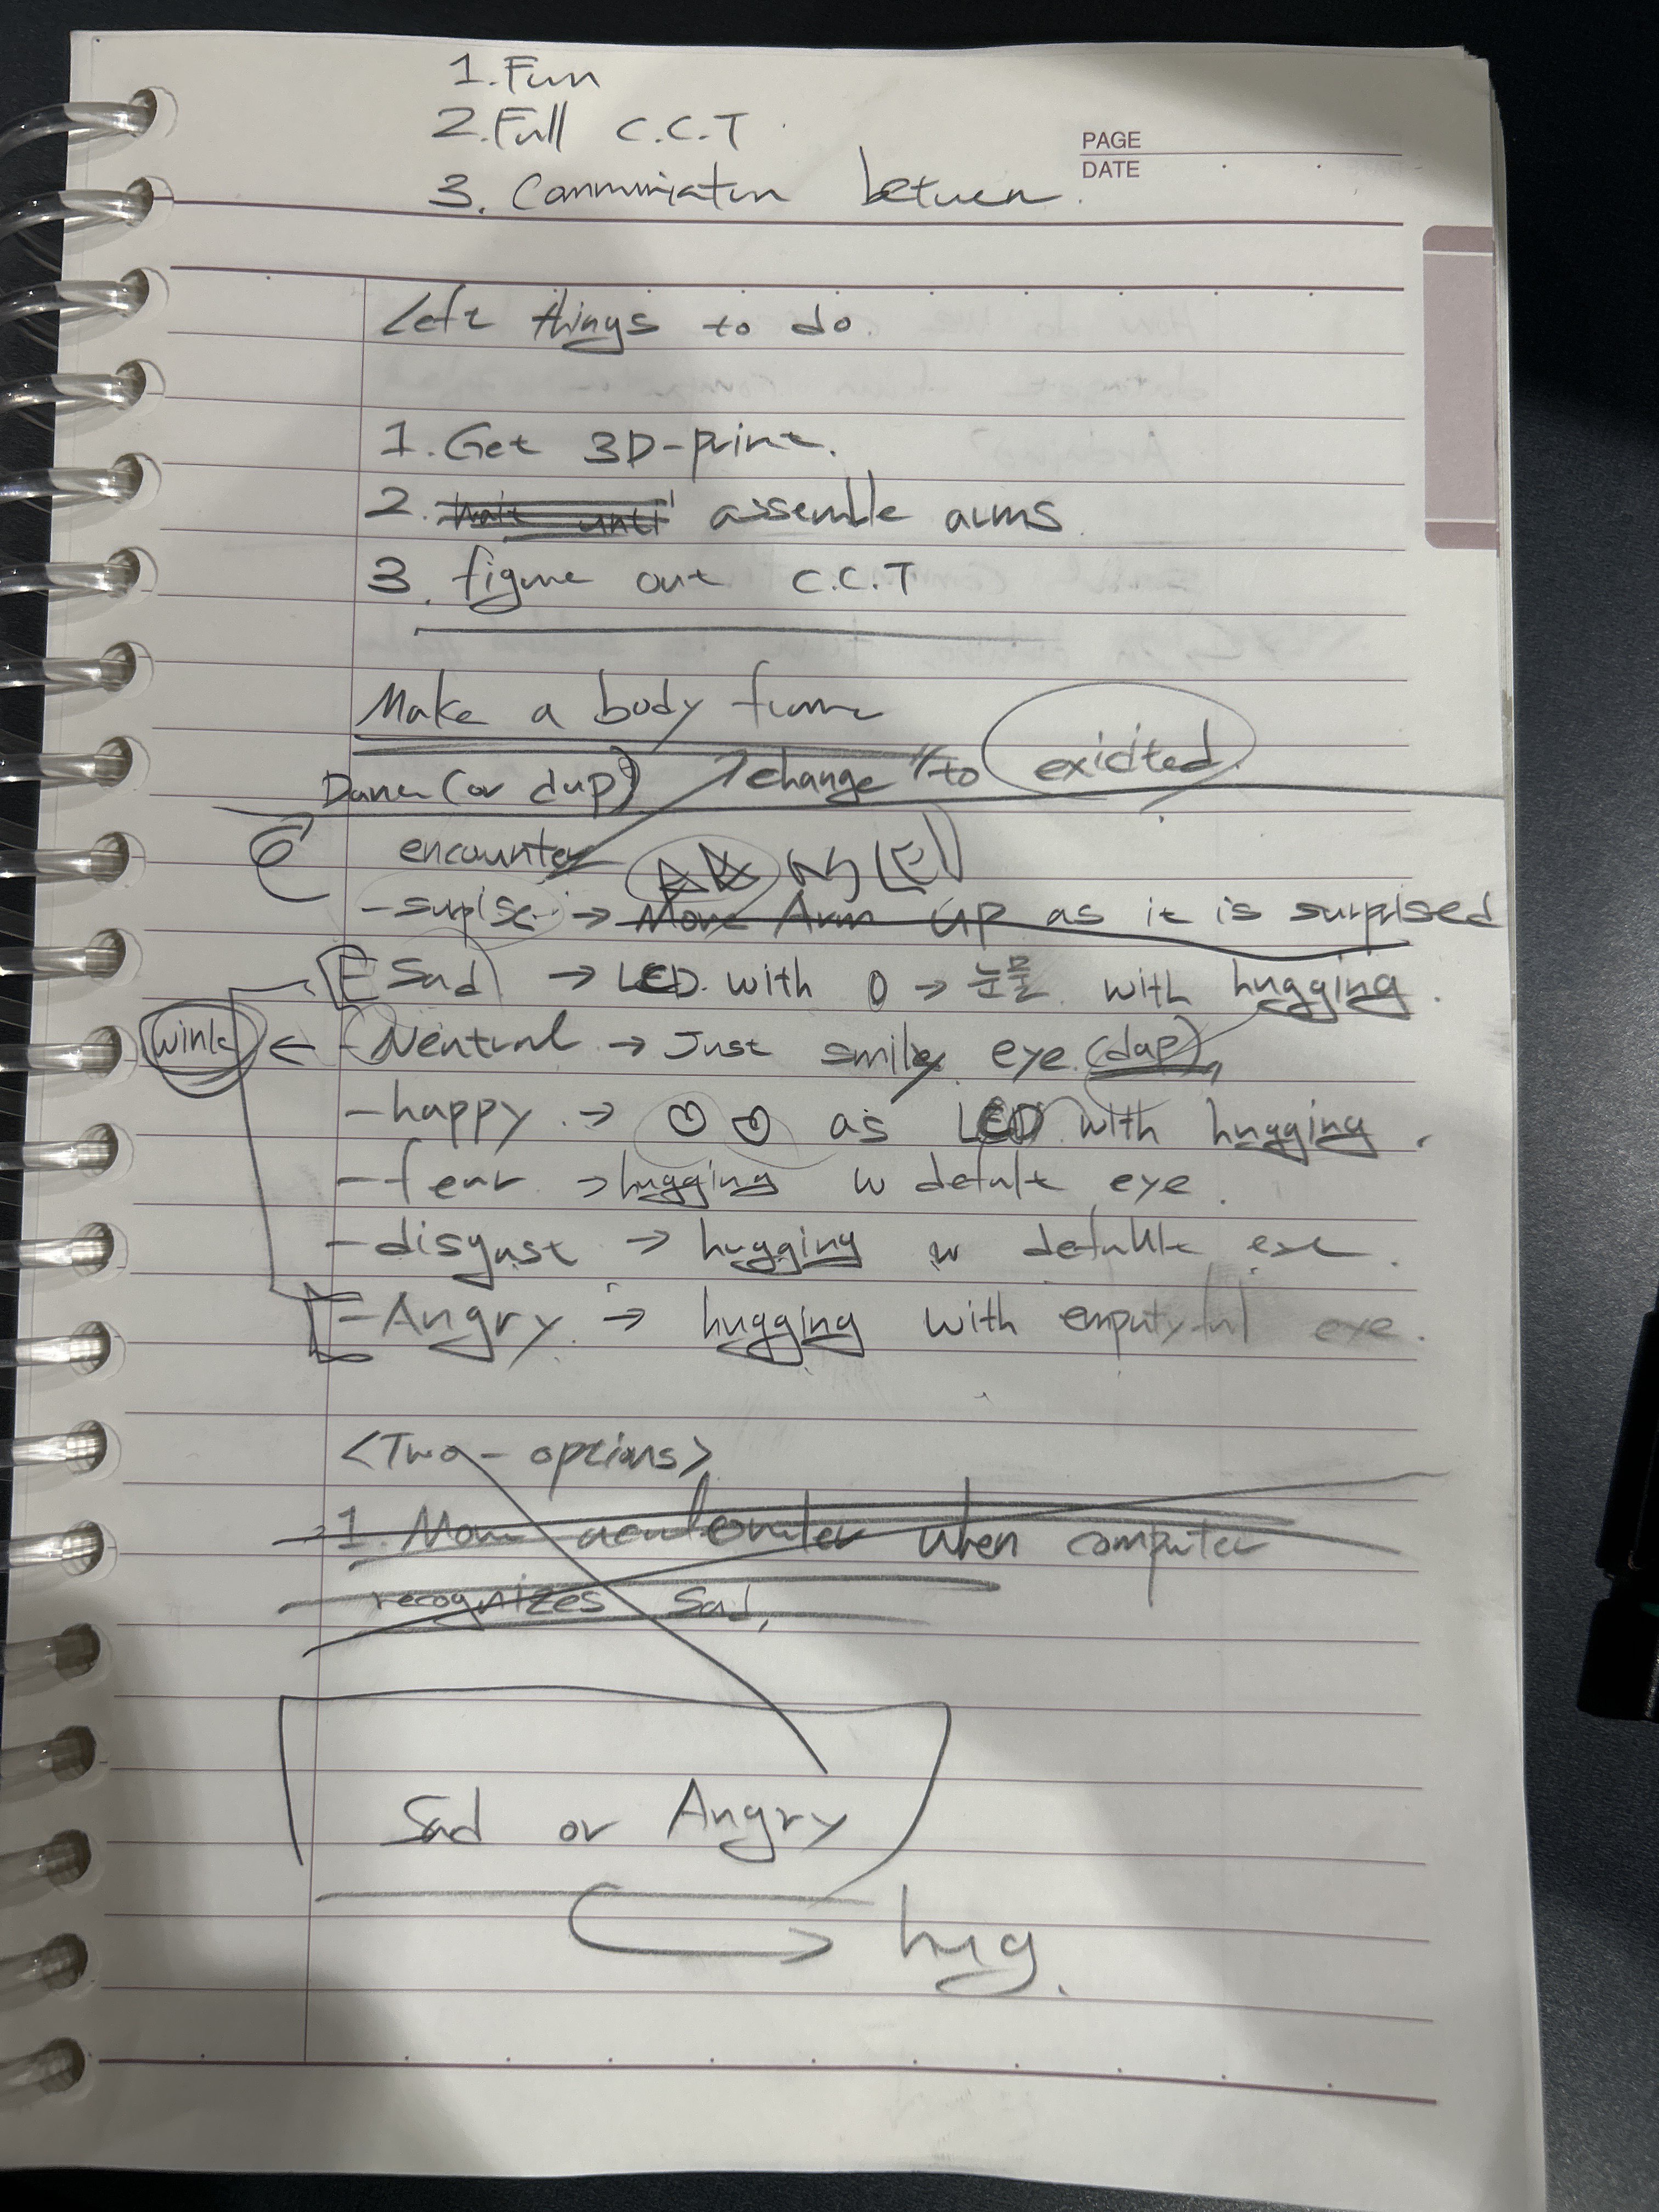 1. Fun
2. Full C.C.T
3. Communiatun between
PAGE
DATE
Left things to do.
1. Get 3D-print.
2. wait until assemble arms
3. figure out C.C.T
Make a body frame
(or dap) change to exicited.
encounter
-surpise → Move Arm up as it is surprised
Sad → LED with 0 → 눈물 with hugging.
wink ← -Neutral → Just smiley eye (dap),
-happy → as LED with hugging.
-fear → hugging w defalt eye.
-disgust → hugging w defallt eye.
-Angry → hugging with eye.
<Two-options>
1. Move when computer
recognizes Sad.
Sad or Angry
hug.